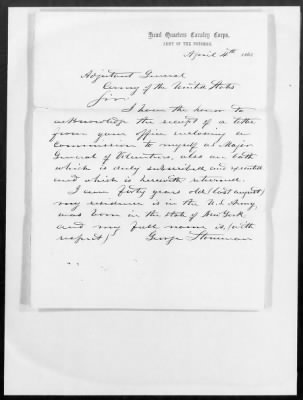 Head Quarters Cavalry Corps,
ARMY OF THE POTOMAC,
April 4th 1863
Adjutant General
Army of the United States
Sir:
I have the honor to
acknowledge the receipt of a letter
from your office inclosing a
Commission to myself as Major
General of Volunteers, also an oath
which is duly subscribed and executed
and which is herewith returned.
I am forty years old (last august)
my residence is in the U.S. Army,
was born in the state of New York
and my full name is, (with
respect) George Stoneman